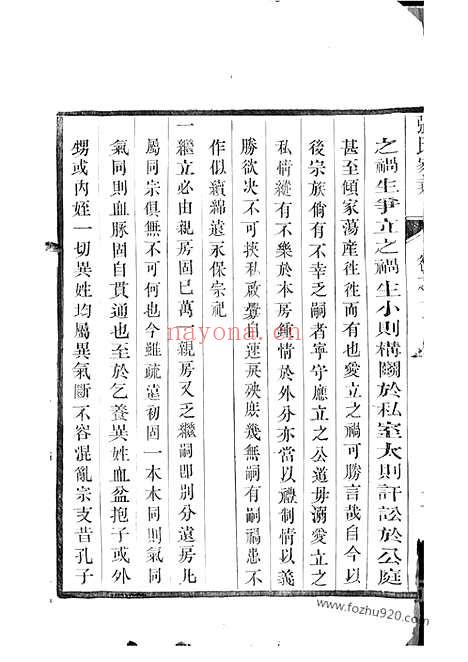 之禍生爭立之禍生小則構鬬於私室大則訐訟於公庭
甚至傾家蕩產徃徃而有也愛立之禍可勝言哉自今以
後宗族倘有不幸乏嗣者寧守應立之公道毋溺愛立之
私情縱有不樂於本房鍾情於外分亦當以禮制情以義
勝欲决不可挾私啟釁自速戾殃庶幾無嗣有嗣禍患不
作似續綿遠永保宗祀
一繼立必由親房固已萬一親房又乏繼嗣即別分遠房凡
屬同宗俱無不可何也今雖疏遠初固一本木同則氣同
氣同則血脈固自貫通也至於乞養異姓血盆抱子或外
甥或內姪一切異姓均屬異氣斷不容混亂宗支昔孔子
nayona.cn
www.fozhu920.com